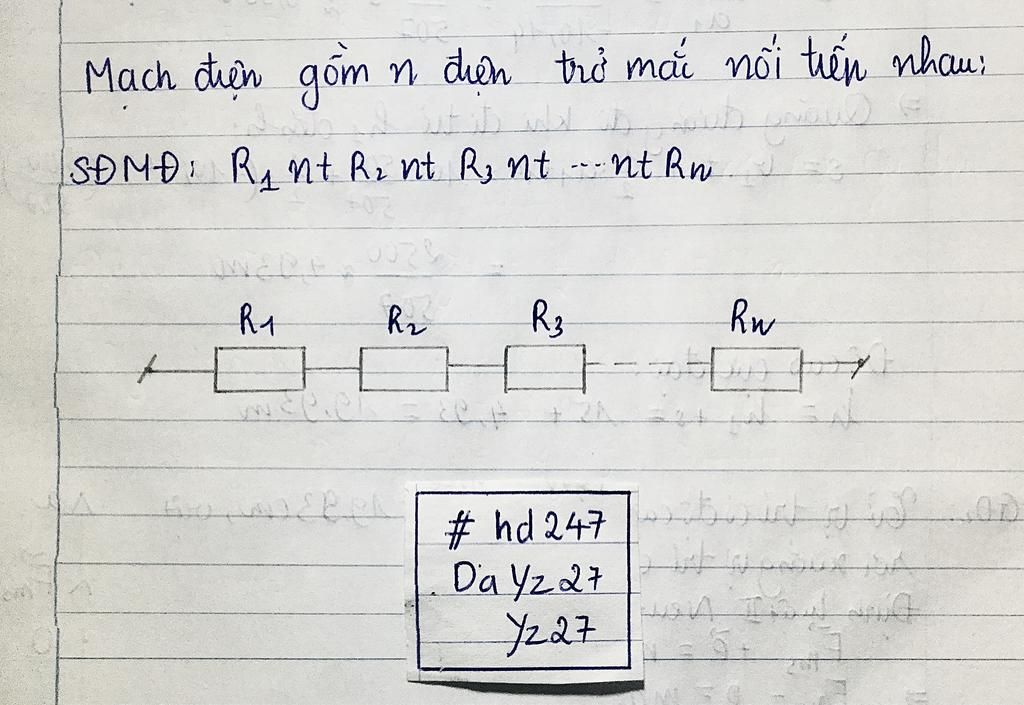 Mạch điện gồm n điện trở mắc nối tiếp nhau:
SĐMĐ: R1 nt R2 nt R3 nt ... nt Rn
R1 R2 R3 Rn
# hd247
Da Yz27
Yz27